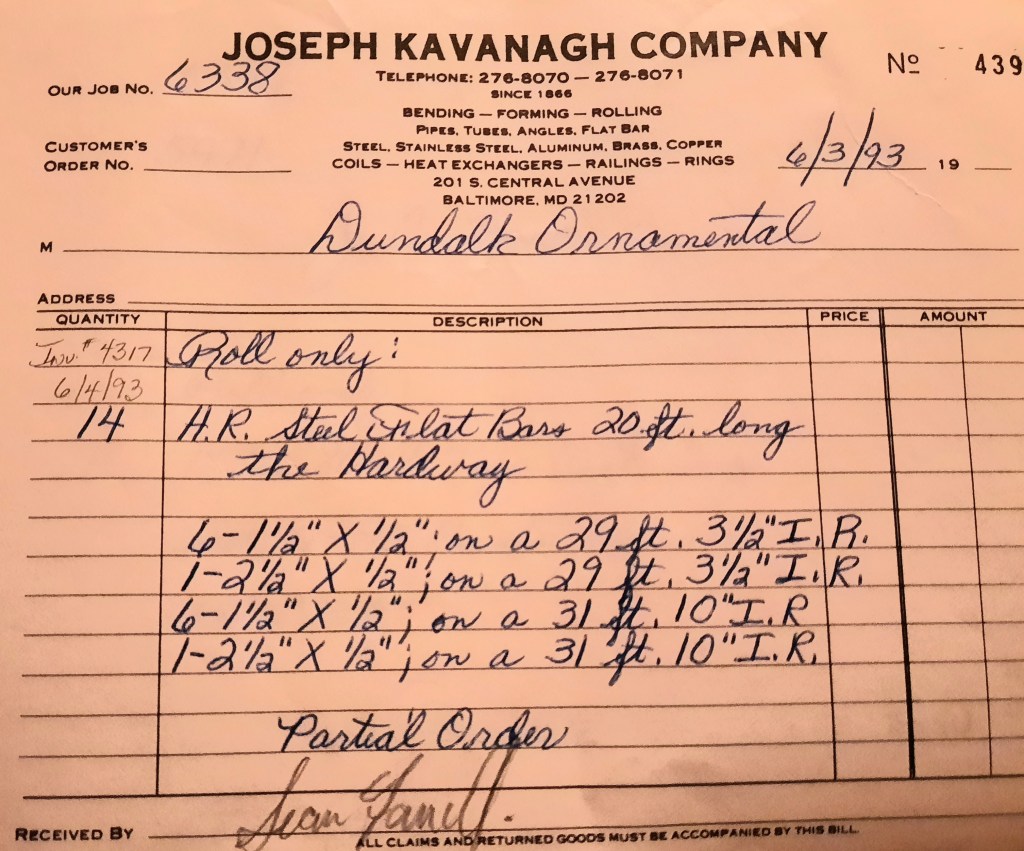 JOSEPH KAVANAGH COMPANY
No 439
OUR JOB No. 6338
TELEPHONE: 276-8070 — 276-8071
SINCE 1866
BENDING — FORMING — ROLLING
PIPES, TUBES, ANGLES, FLAT BAR
CUSTOMER'S
ORDER NO.
STEEL, STAINLESS STEEL, ALUMINUM, BRASS, COPPER
COILS — HEAT EXCHANGERS — RAILINGS — RINGS
6/3/93 19
201 S. CENTRAL AVENUE
BALTIMORE, MD 21202
M Dundalk Ornamental
ADDRESS
QUANTITY DESCRIPTION PRICE AMOUNT
Inv. # 4317 Roll only:
6/4/93
14 H.R. Steel Flat Bars 20 ft. long
the Hardway
6-1½" X ½"; on a 29 ft. 3½" I.R.
1-2½" X ½"; on a 29 ft. 3½" I.R.
6-1½" X ½"; on a 31 ft. 10" I.R
1-2½" X ½"; on a 31 ft. 10" I.R.
Partial Order
RECEIVED BY Sean
ALL CLAIMS AND RETURNED GOODS MUST BE ACCOMPANIED BY THIS BILL